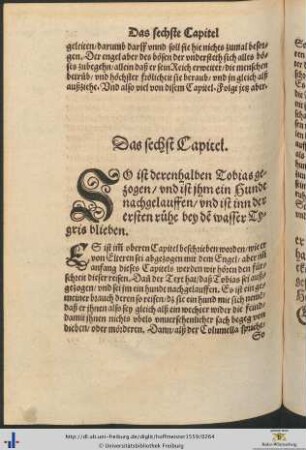 Das sechste Capitel
geleiten/ darumb darff vnnd soll sie hie nichts zumal besor-
gen. Der engel aber des bösen der vndersteth sich alles bö-
ses zubegehn/ allein daß er sein Reich erweiter/ die menschen
betrüb/ vnd höchster frölicheit sie beraub/ vnd jn gleich alß
außziehe. Vnd also viel von disem Capitel. Folgt jetz aber.
Das sechst Capitel.
SO ist derenhalben Tobias ge-
zogen/ vnd ist jhm ein Hundt
nachgelauffen/ vnd ist inn der
ersten rühe bey dē wasser Ty-
gris blieben.
ES ist im̄ oberen Capitel beschrieben worden/ wie er
von Eltern sei abgezogen mit dem Engel/ aber im
anfang dieses Capitels werden wir hören den
schen dieser reisen. Dañ der Text hat/ daß Tobias sei auß-
gezogen/ vnd sei jm ein hund nachgelauffen. So ist ein ge-
meiner brauch deren so reisen/ dz sie ein hund mit sich nemē/
daß er jhnen also sey gleich alß ein wechter wider die feind/
damit jhnen nichts vbels vnuersehenlicher sach begeg von
dieben/ oder mörderen. Dann/ alß der Columella spricht:
So
http://dl.ub.uni-freiburg.de/diglit/hoffmeister1559/0264
© Universitätsbibliothek Freiburg
Baden-Württemberg